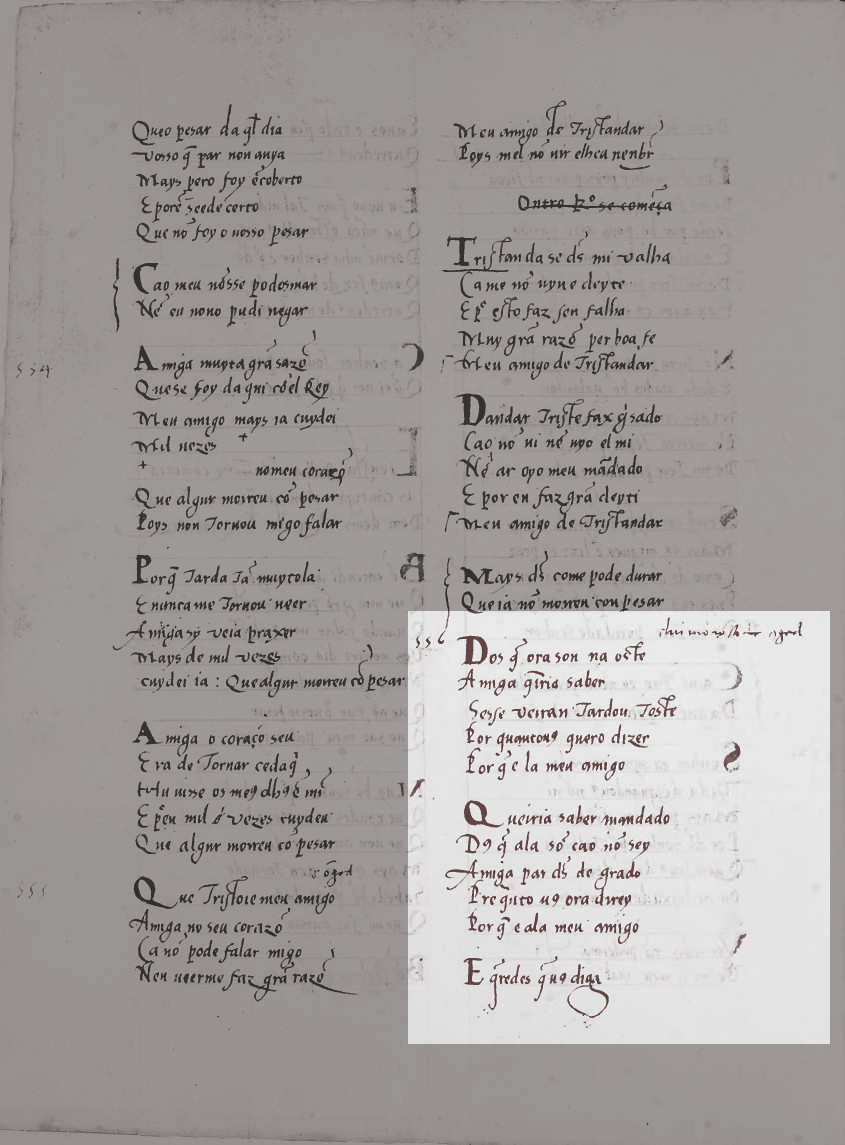 Queo pesar da ql̃ dia
vosso q̃ par non auya
Mays pero foy ẽcoberto
E porẽ seede certo
Que nõ foy o uosso pesar
Cao meu nõsse podosmar
Nẽ eu nono pudi negar
554
Amiga muyta grã sazõ
Quese foy da qui cõ el Rey
Meu amigo mays ia cuydei
Mil uezes +
+ no meu coraçõ
Que algur moireu cõ pesar
Poys non Tornou migo falar
Porq̃ Tarda Tã muyto la
E nunca me Tornou ueer
Amiga sy veia prazer
Mays de mil vezes
cuydei ia : Que algur morreu cõ pesar
Amiga o coraçõ seu
Era de Tornar ced aq̃
Hu uisse os meꝯ
E mil uezes cuydeu
Que algur morreu cõ pesar
555
Que Tristoie meu amigo
Amiga no seu coraçõ
Ca nõ pode falar migo
Nen ueerme faz grã razõ
Meu amigo de Tristandar
Poys mel nõ uir
Outro Rº se comẽça
Tristan da se ds̃ mi valha
Ca me nõ uyu e deyte
E esto faz sen falha
Muy grã razõ per boa fe
Meu amigo de Tristandar
Dandar Triste fax g̃sado
Cao nõ ui nẽ uyo el mi
Nẽ ar oyo meu mãdado
E por en faz grã deyti
Meu amigo de Tristandar
Mays ds̃ come pode durar
Que ia nõ morreu con pesar
556
Dos q̃ ora son na oste
Amiga q̃rria saber
Sesse verran Tardou Toste
Por quantouꝯ quero dizer
Por q̃ e la meu amigo
Queiria saber mandado
Dꝯ q̃ ala sõ cao nõ sey
Amiga par ds̃ de grado
Pre uꝯ ora direy
Por q̃ e ala meu amigo
E q̃redes q̃ uꝯ diga